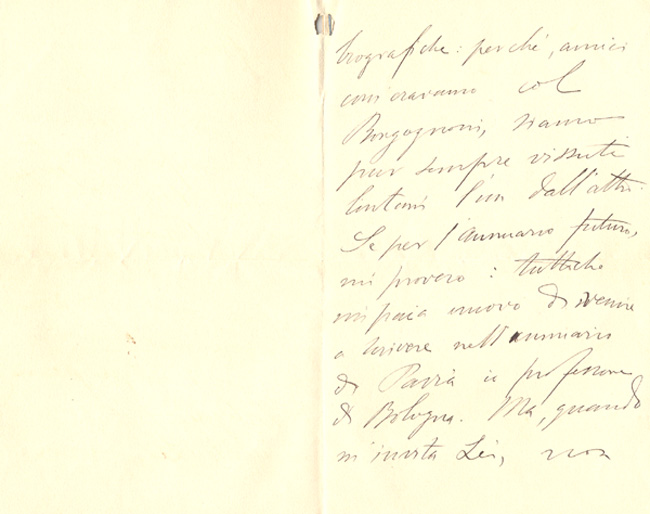 biografiche: perché, amici
com'eravamo col
Borgognoni, siamo
pur sempre vissuti
lontani l'un dall'altro.
Se per l'Annuario futuro,
mi proverò: tuttoché
mi paia nuovo di venire
a scrivere nell'annuario
di Pavia io professore
di Bologna. Ma, quando
m'invita Lei, non